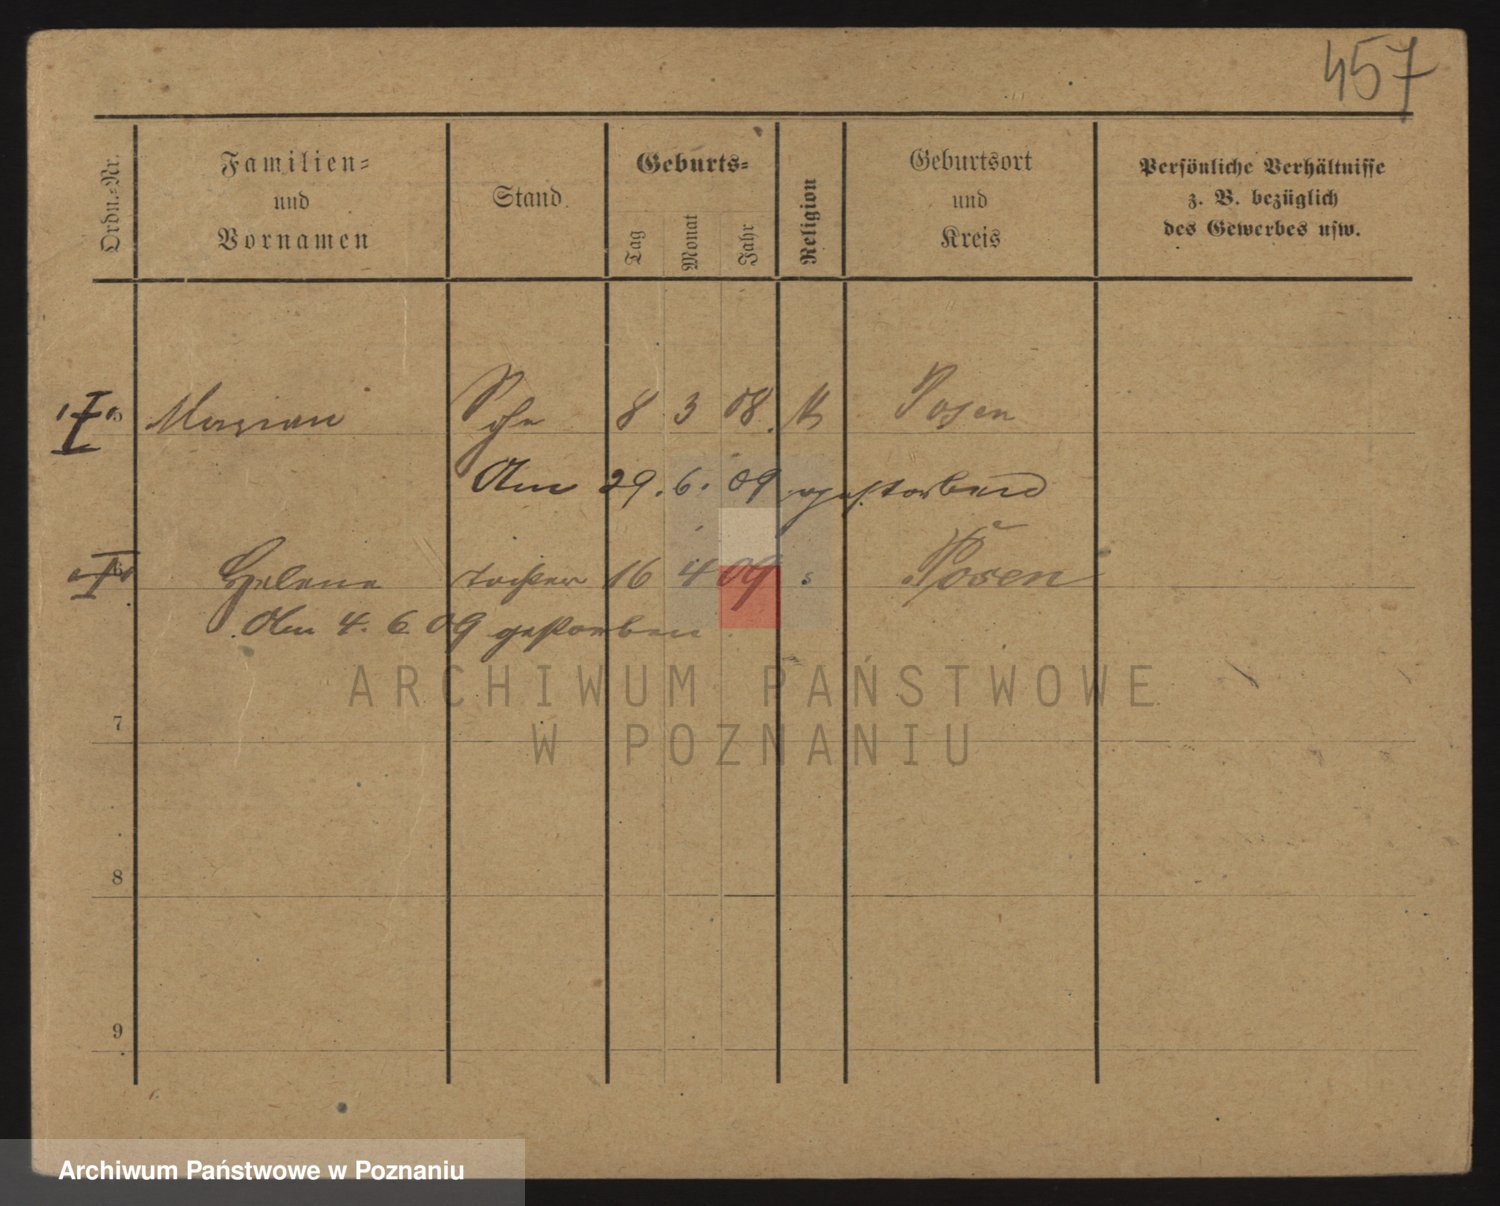 457
Ordn.-Nr.
Familien-
und
Vornamen
Stand
Geburts-
Tag
Monat
Jahr
Religion
Geburtsort
und
Kreis
Persönliche Verhältnisse
z. B. bezüglich
des Gewerbes usw.
5 Maryan Sohn 8 3 08. K Posen
Am 29. 6. 09 gestorben
6 Helene Tochter 16 4 09 " Posen
Am 4. 6 09 gestorben
ARCHIWUM PAŃSTWOWE
W POZNANIU
7
8
9
Archiwum Państwowe w Poznaniu